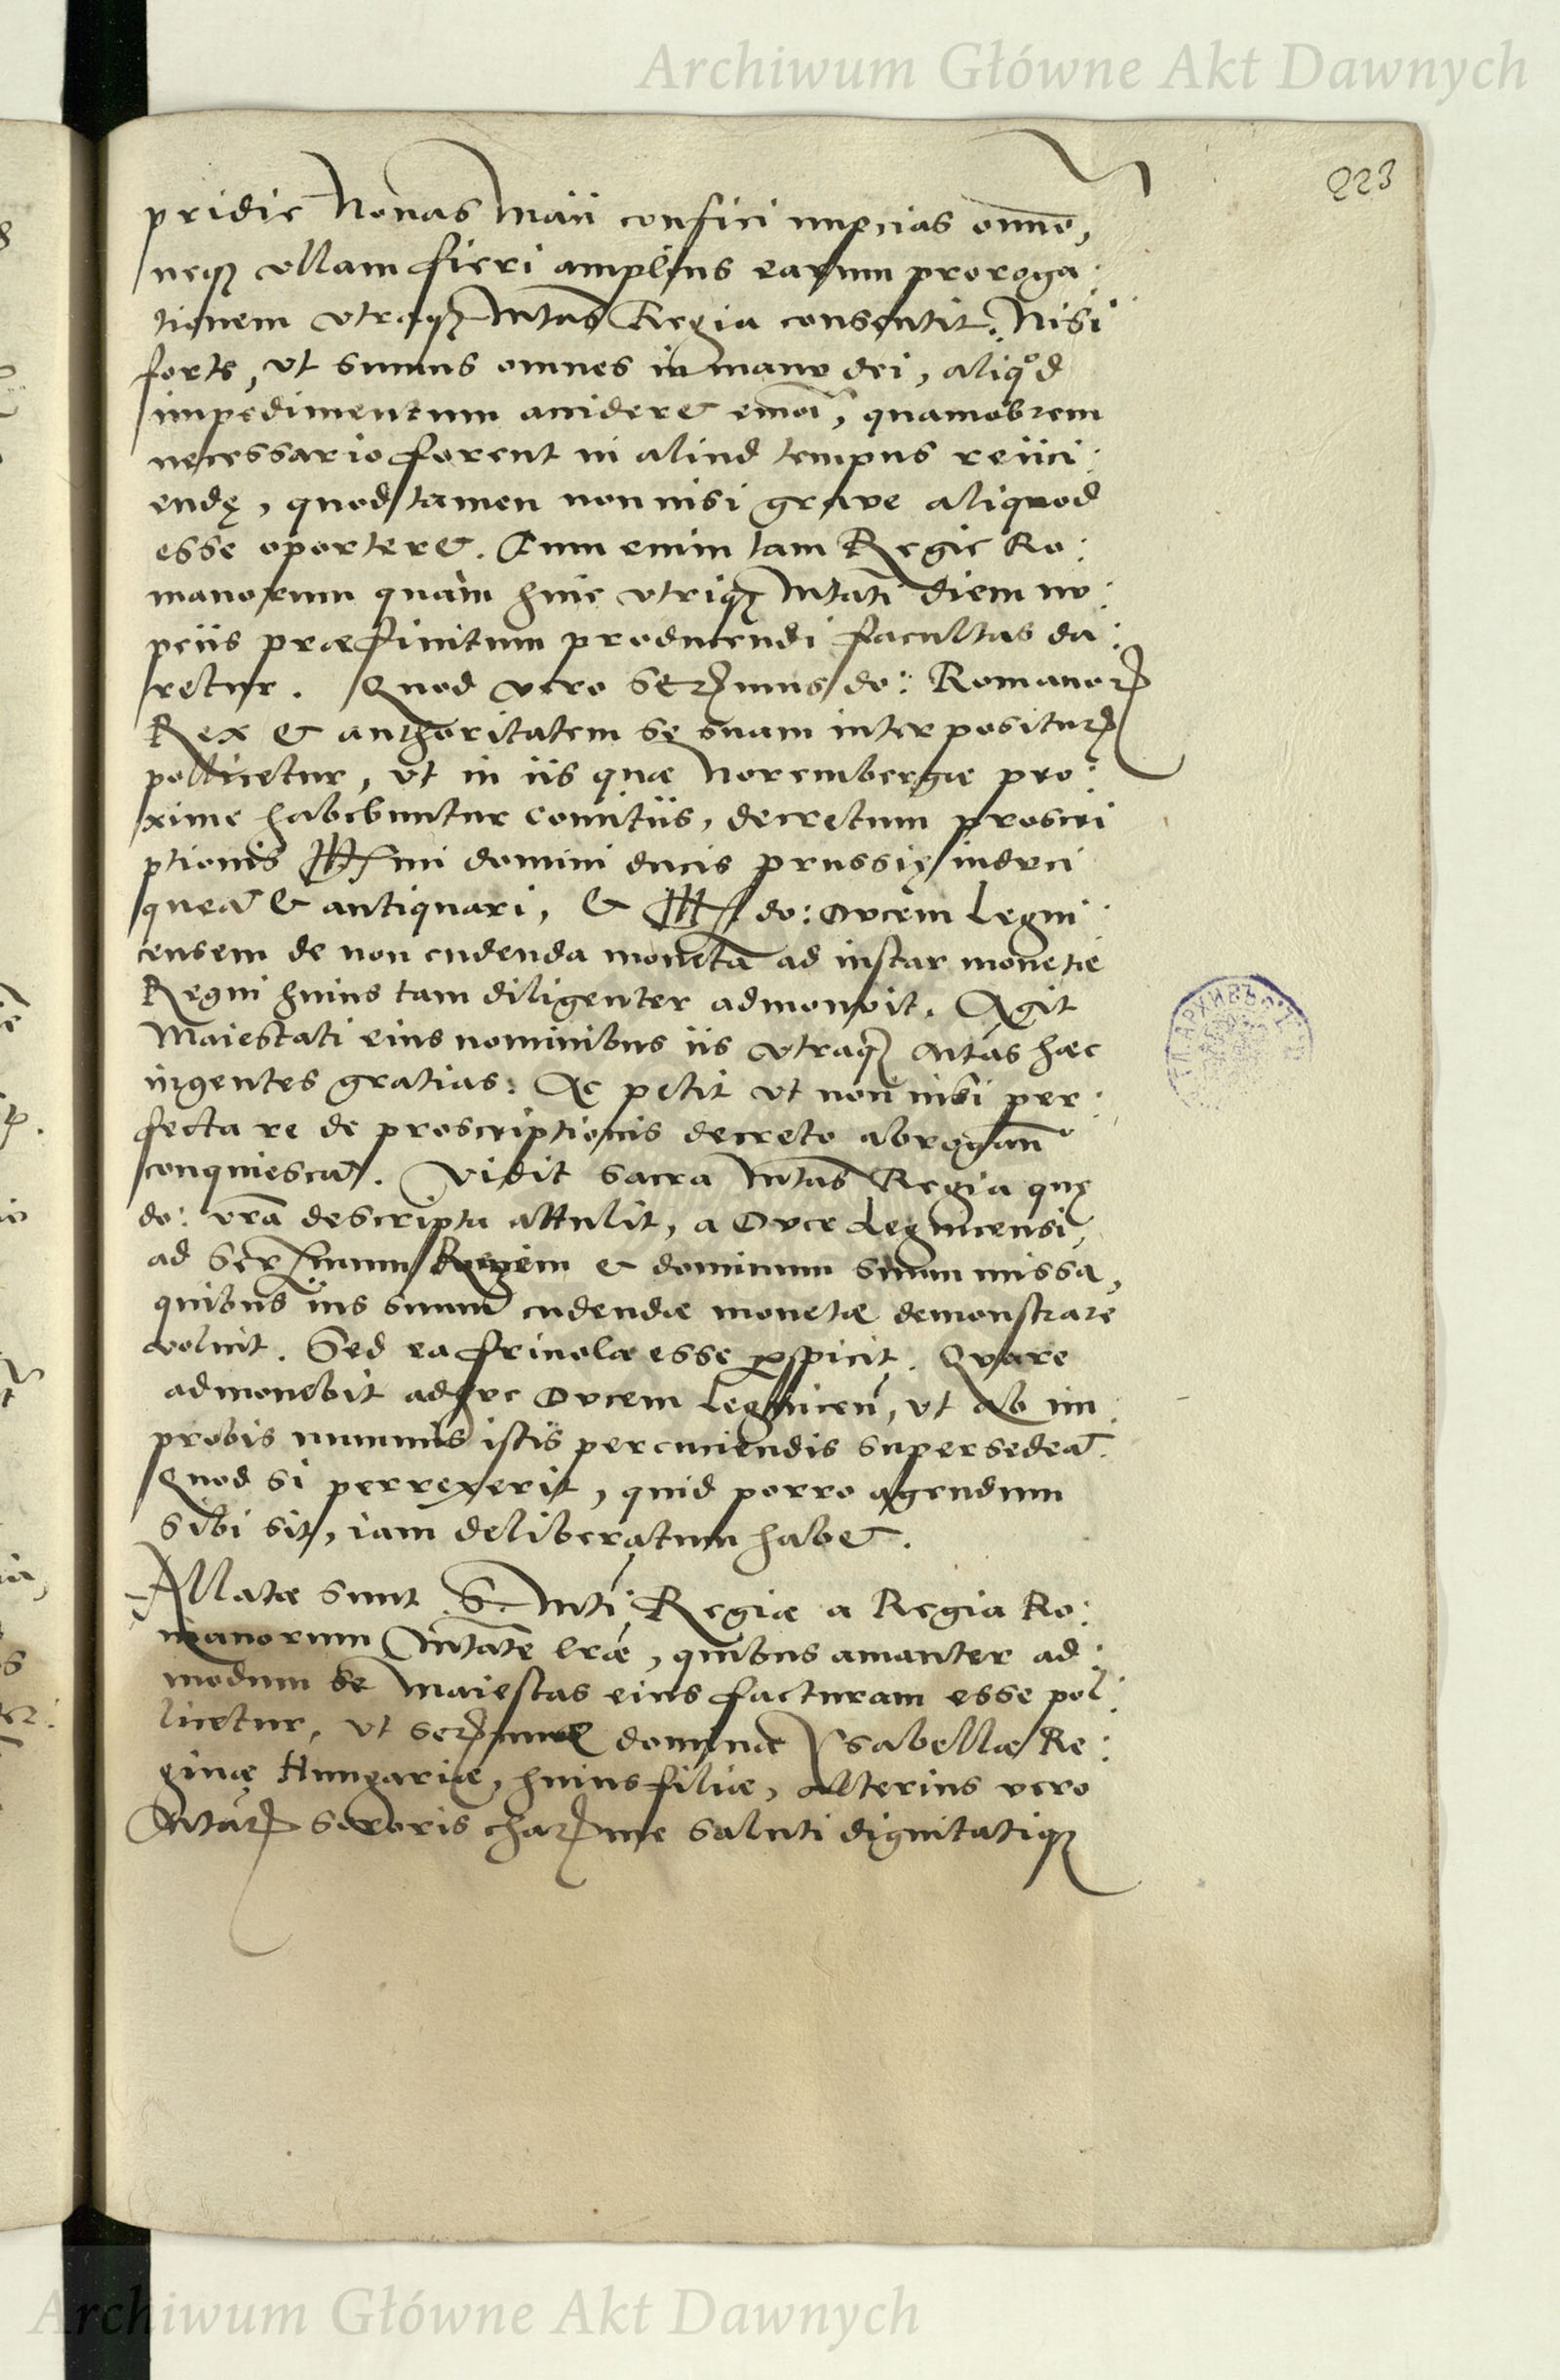 Archiwum Główne Akt Dawnych
223
pridie Nonas Maii confici nupcias omnino,
neqꝫ ullam fieri amplius earum proroga:
tionem utraqꝫ Mtas Regia consentit. Nisi
forte, ut sumus omnes in manu dei, aliqod
impedimentum accideret eiusmodi, quamobrem
necessario forent in aliud tempus reiici:
endę, quod tamen non nisi grave aliquod
esse oporteret. Cum enim tam Regie Ro:
manorum quàm huic utriqꝫ Mtati diem nu:
pciis præfinitum producendi facultas da:
retur. Quod vero Serꝫmus do: Romanorꝫ
Rex et authoritatem se suam interpositurꝫ
pollicetur, ut in iis quæ Norembergæ pro:
xime habebuntur comitiis, decretum proscri
ptionis Illmi domini ducis prussię induci
queat et antiquari, et Ill. do: Ducem Legni:
censem de non cudenda moneta ad instar monetæ
Regni huius tam diligenter admonuit. Agit
Maiestati eius nominibus iis utraqꝫ Mtas hæc
ingentes gratias: Ac petit ut non nisi per:
fecta re de proscriptionis decreto abrogan
conquiescat. Vidit sacra Mtas Regia quę
do: vra descripta attulit, a Duce Legnicensi,
ad Serꝫmum Regem et dominum suum missa,
quibus ius suum cudendæ monetæ demonstrare
voluit. Sed ea frivola esse perspicit. Quare
admonebit adhuc Ducem Legnicen, ut ab im:
probis nummis istis percuciendis supersedeat.
Quod si perrexerit, quid porro agendum
sibi sit, iam deliberatum habet.
Allatæ sunt S. Mti Regiæ a Regia Ro:
manorum Mtate lræ, quibus amanter ad:
modum se Maiestas eius facturam esse pol:
licetur, ut serꝫmæ dominæ Ysabellæ Re:
ginæ Hungariæ, huius filiæ, alterius vero
Mtatꝫ sororis charꝫme saluti dignitatiqꝫ
Archiwum Główne Akt Dawnych